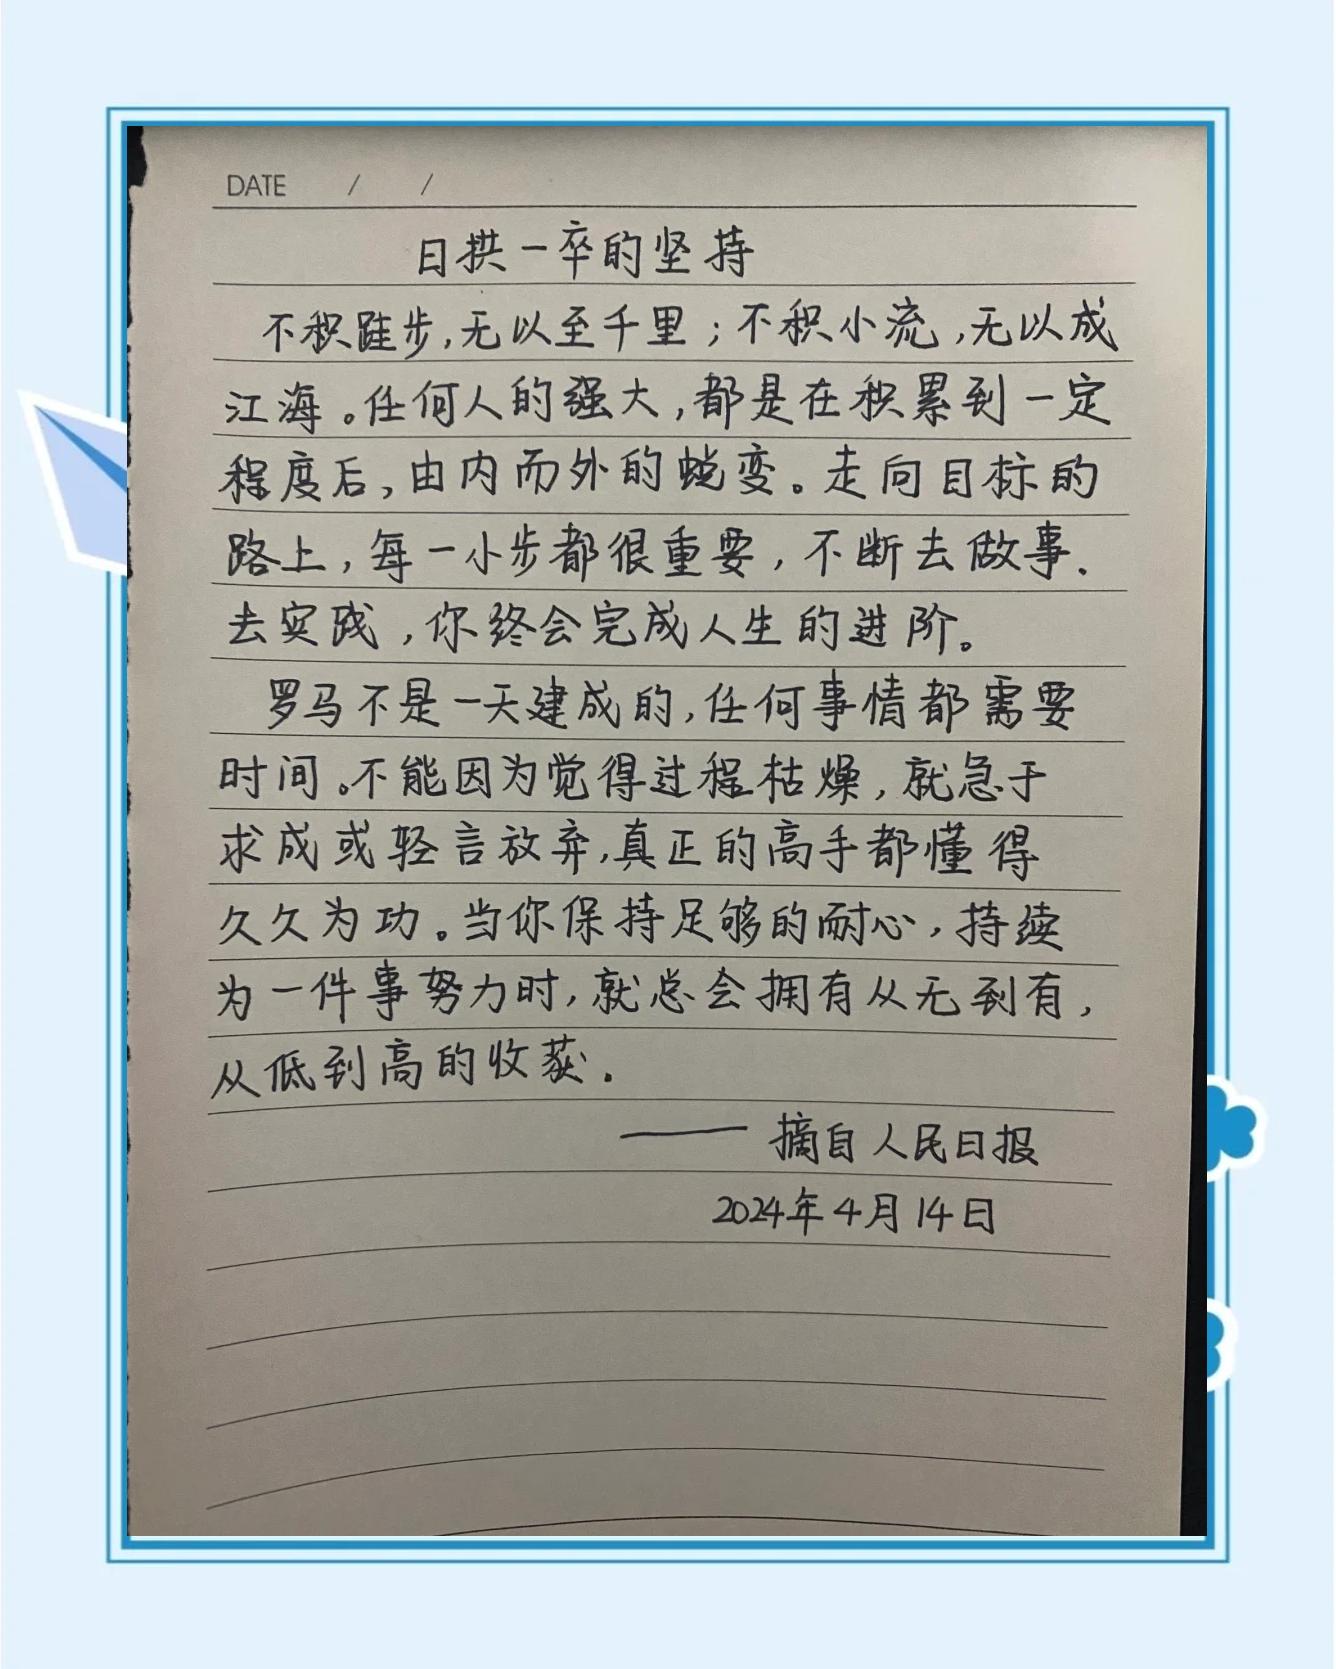 DATE / /
日拱一卒的坚持
不积跬步,无以至千里;不积小流,无以成
江海。任何人的强大,都是在积累到一定
程度后,由内而外的蜕变。走向目标的
路上,每一小步都很重要,不断去做事.
去实践,你终会完成人生的进阶。
罗马不是一天建成的,任何事情都需要
时间。不能因为觉得过程枯燥,就急于
求成或轻言放弃,真正的高手都懂得
久久为功。当你保持足够的耐心,持续
为一件事努力时,就总会拥有从无到有,
从低到高的收获.
——摘自人民日报
2024年4月14日